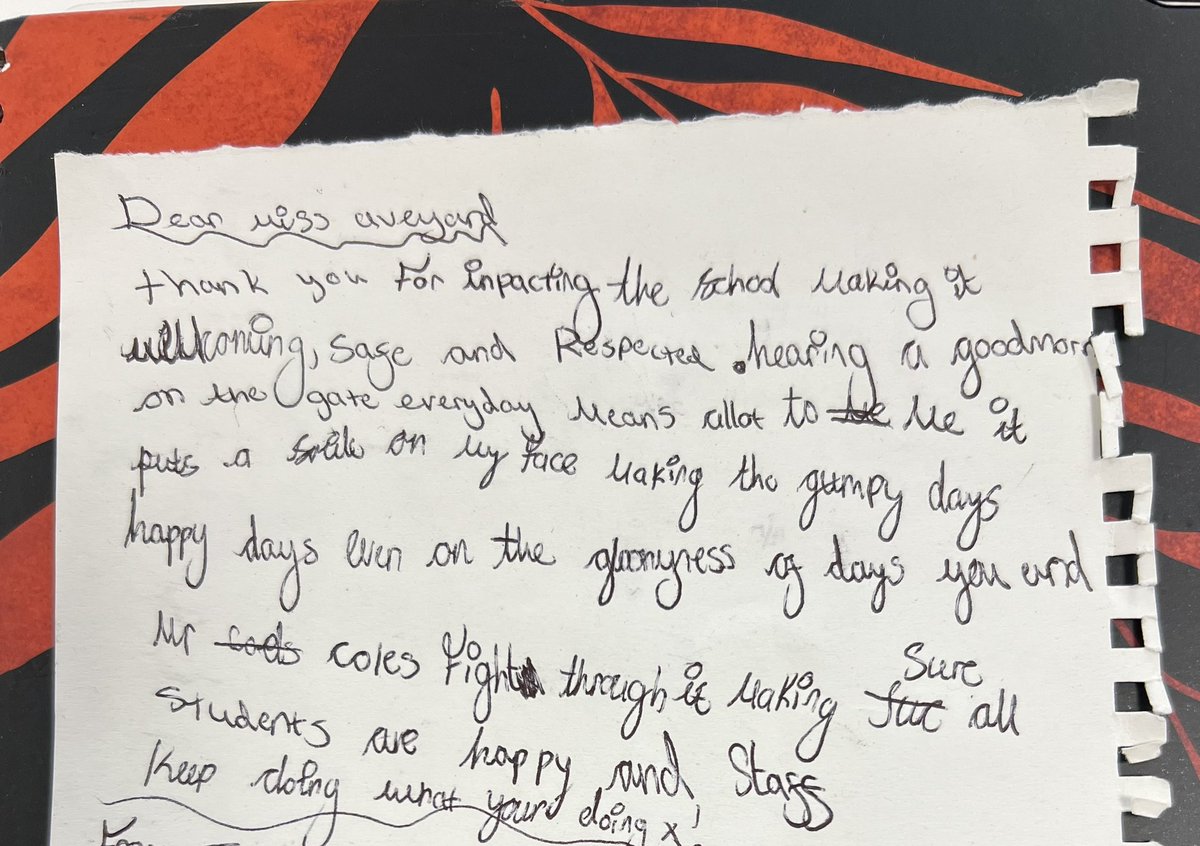 Dear miss aveyard
thank you For inpacting the school making it
wellcoming, safe and Respected. hearing a goodmorn
on the gate everyday means allot to me it
puts a smile on my face making the gumpy days
happy days even on the gloomyness of days you and
Mr coles Fight through it making Sure all
Students are happy and Staff
Keep doing what your doing x!